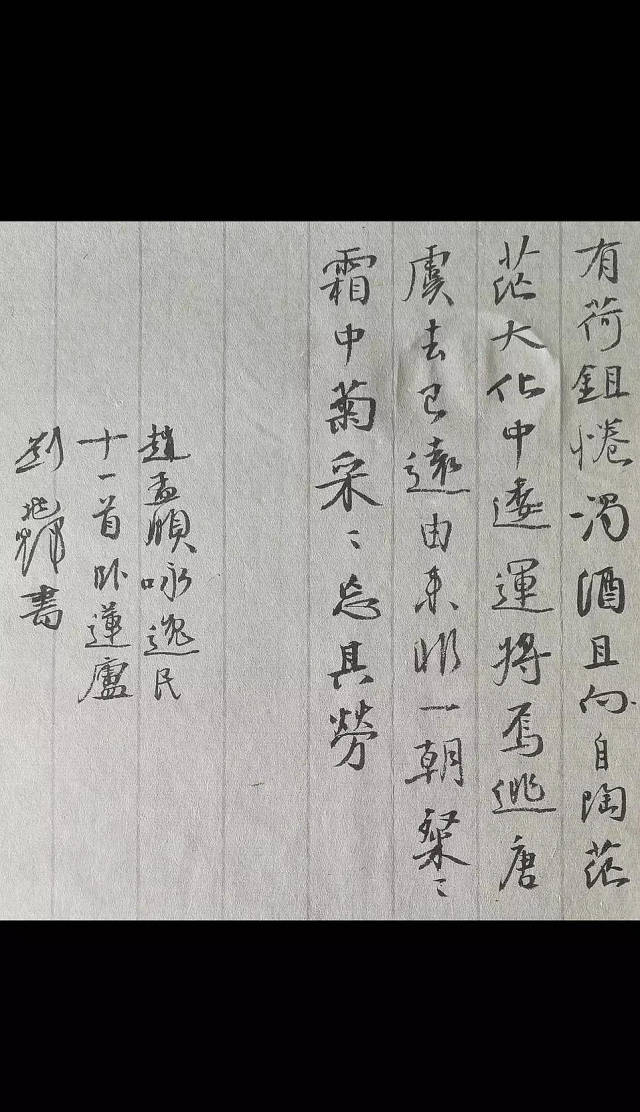 有荷鉏惓濁酒且向自陶茫
茫大化中逶運將焉逃唐
虞去已遠由來非一朝粲〻
霜中菊采〻忘其勞
趙孟頫咏逸民
十一首卧蓮廬
劉兆輝書